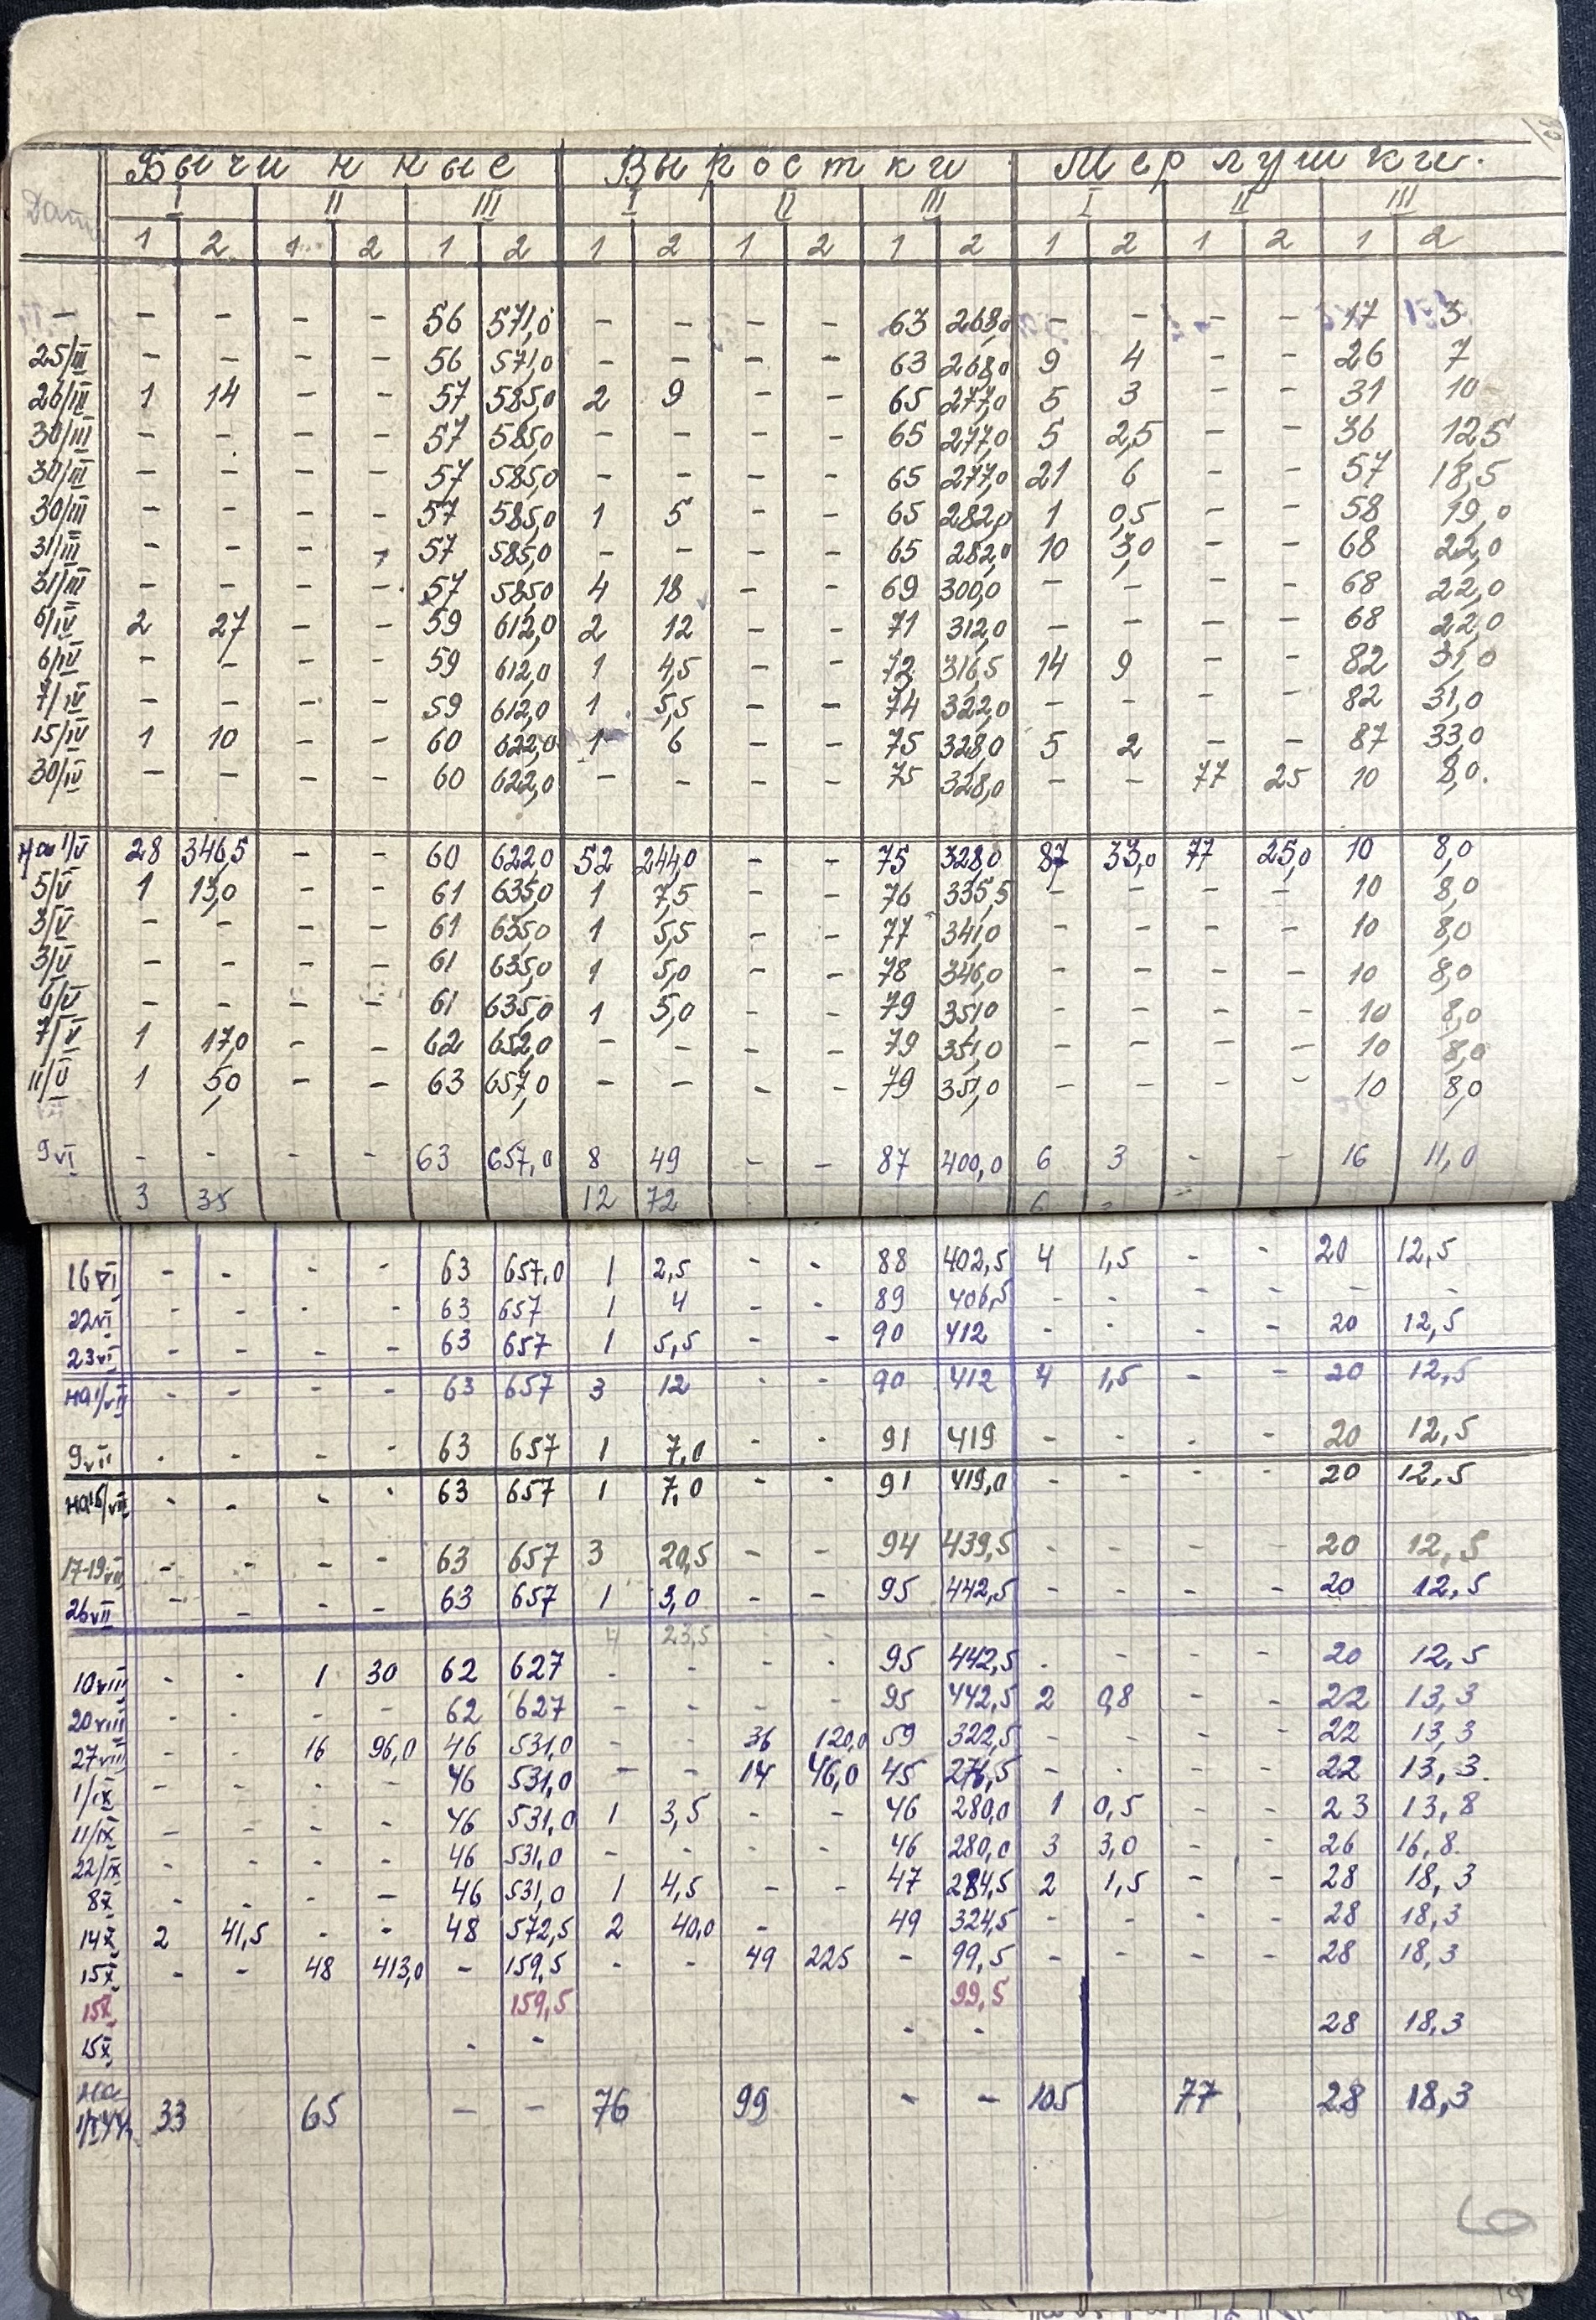 Бычинные Выростки Мерлушки.
Дата I II III I II III I II III
1 2 1 2 1 2 1 2 1 2 1 2 1 2 1 2 1 2
— - - - - 56 571,0 - - - - 63 268,0 - - - - 17 3
25/III - - - - 56 571,0 - - - - 63 268,0 9 4 - - 26 7
26/III 1 14 - - 57 585,0 2 9 - - 65 277,0 5 3 - - 31 10
30/III - - - - 57 585,0 - - - - 65 277,0 5 2,5 - - 36 12,5
30/III - - - - 57 585,0 - - - - 65 277,0 21 6 - - 57 18,5
30/III - - - - 57 585,0 1 5 - - 65 282,0 1 0,5 - - 58 19,0
31/III - - - - 57 585,0 - - - - 65 282,0 10 3,0 - - 68 22,0
31/III - - - - 57 585,0 4 18 - - 69 300,0 - - - - 68 22,0
6/IV 2 27 - - 59 612,0 2 12 - - 71 312,0 - - - - 68 22,0
6/IV - - - - 59 612,0 1 4,5 - - 72 316,5 14 9 - - 82 31,0
7/IV - - - - 59 612,0 1 5,5 - - 74 322,0 - - - - 82 31,0
15/IV 1 10 - - 60 622,0 1 6 - - 75 328,0 5 2 - - 87 33,0
30/IV - - - - 60 622,0 - - - - 75 328,0 - - 77 25 10 8,0.
на 1/V 28 346,5 - - 60 622,0 52 244,0 - - 75 328,0 87 33,0 77 25,0 10 8,0
5/V 1 13,0 - - 61 635,0 1 7,5 - - 76 335,5 - - - - 10 8,0
3/V - - - - 61 635,0 1 5,5 - - 77 341,0 - - - - 10 8,0
3/V - - - - 61 635,0 1 5,0 - - 78 346,0 - - - - 10 8,0
6/V - - - - 61 635,0 1 5,0 - - 79 351,0 - - - - 10 8,0
7/V 1 17,0 - - 62 652,0 - - - - 79 351,0 - - - - 10 8,0
11/V 1 5,0 - - 63 657,0 - - - - 79 351,0 - - - - 10 8,0
9 VI - - - - 63 657,0 8 49 - - 87 400,0 6 3 - - 16 11,0
3 35 12 72 6
16 VI - - - - 63 657,0 1 2,5 - - 88 402,5 4 1,5 - - 20 12,5
22 VI - - - - 63 657 1 4 - - 89 406,5 - - - - - -
23 VI - - - - 63 657 1 5,5 - - 90 412 - - - - 20 12,5
на 1/VII - - - - 63 657 3 12 - - 90 412 4 1,5 - - 20 12,5
9 VII - - - - 63 657 1 7,0 - - 91 419 - - - - 20 12,5
на 15/VII - - - - 63 657 1 7,0 - - 91 419,0 - - - - 20 12,5
17-19 VII - - - - 63 657 3 20,5 - - 94 439,5 - - - - 20 12,5
26 VII - - - - 63 657 1 3,0 - - 95 442,5 - - - - 20 12,5
4 23,5 - -
10 VIII - - 1 30 62 627 - - - - 95 442,5 - - - - 20 12,5
20 VIII - - - - 62 627 - - - - 95 442,5 2 0,8 - - 22 13,3
27 VIII - - 16 96,0 46 531,0 - - 36 120,0 59 322,5 - - - - 22 13,3
1/IX - - - - 46 531,0 - - 14 46,0 45 276,5 - - - - 22 13,3.
11/IX - - - - 46 531,0 1 3,5 - - 46 280,0 1 0,5 - - 23 13,8
22/IX - - - - 46 531,0 - - - - 46 280,0 3 3,0 - - 26 16,8.
8 X - - - - 46 531,0 1 4,5 - - 47 284,5 2 1,5 - - 28 18,3
14 X 2 41,5 - - 48 572,5 2 40,0 - 49 324,5 - - - - 28 18,3
15 X - - 48 413,0 - 159,5 - - 49 225 - 99,5 - - - - 28 18,3
15 X 159,5 99,5
15 X - - - - 28 18,3
на 1/I 44 33 65 — — 76 99 - - 105 77 28 18,3